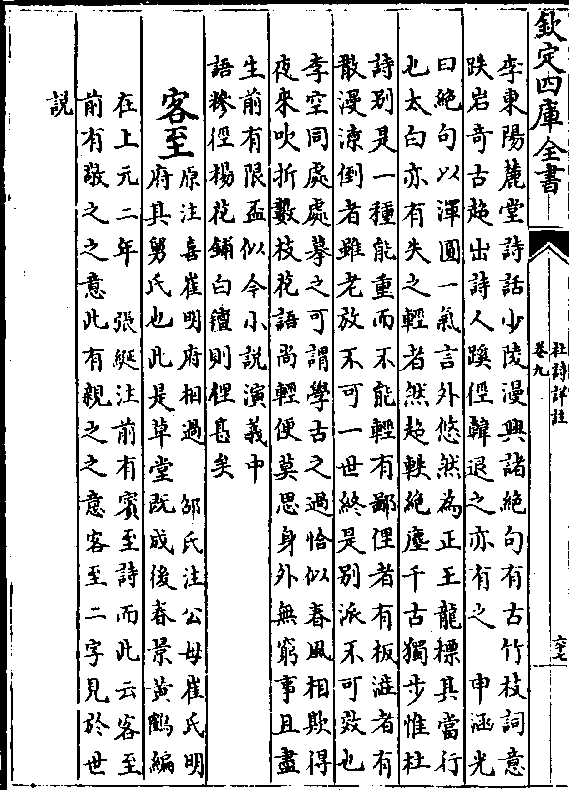 欽定四庫全書
李東陽麓堂詩話少陵漫興諸絶句有古竹枝詞意
跌岩竒古超出詩人蹊徑韓退之亦有之　申涵光
曰絶句以渾圓一氣言外悠然為正王龍標其當行
也太白亦有失之輕者然超軼絶塵千古獨步惟杜
詩别是一種能重而不能輕有鄙俚者有板澁者有
散漫潦倒者雖老放不可一世終是别派不可效也
李空同處處摹之可謂學古之過恰似春風相欺得
夜來吹折數枝花語尚輕便莫思身外無窮事且盡
生前有限盃似今小説演義中
語糝徑楊花鋪白氊則俚甚矣
客至
原注喜崔明府相過　邵氏注公母崔氏明
府其舅氏也此是草堂既成後春景黄鶴編
在上元二年　張綖注前有賓至詩而此云客至
前有敬之之意此有親之之意客至二字見於世
説
杜詩詳註
卷九
六七